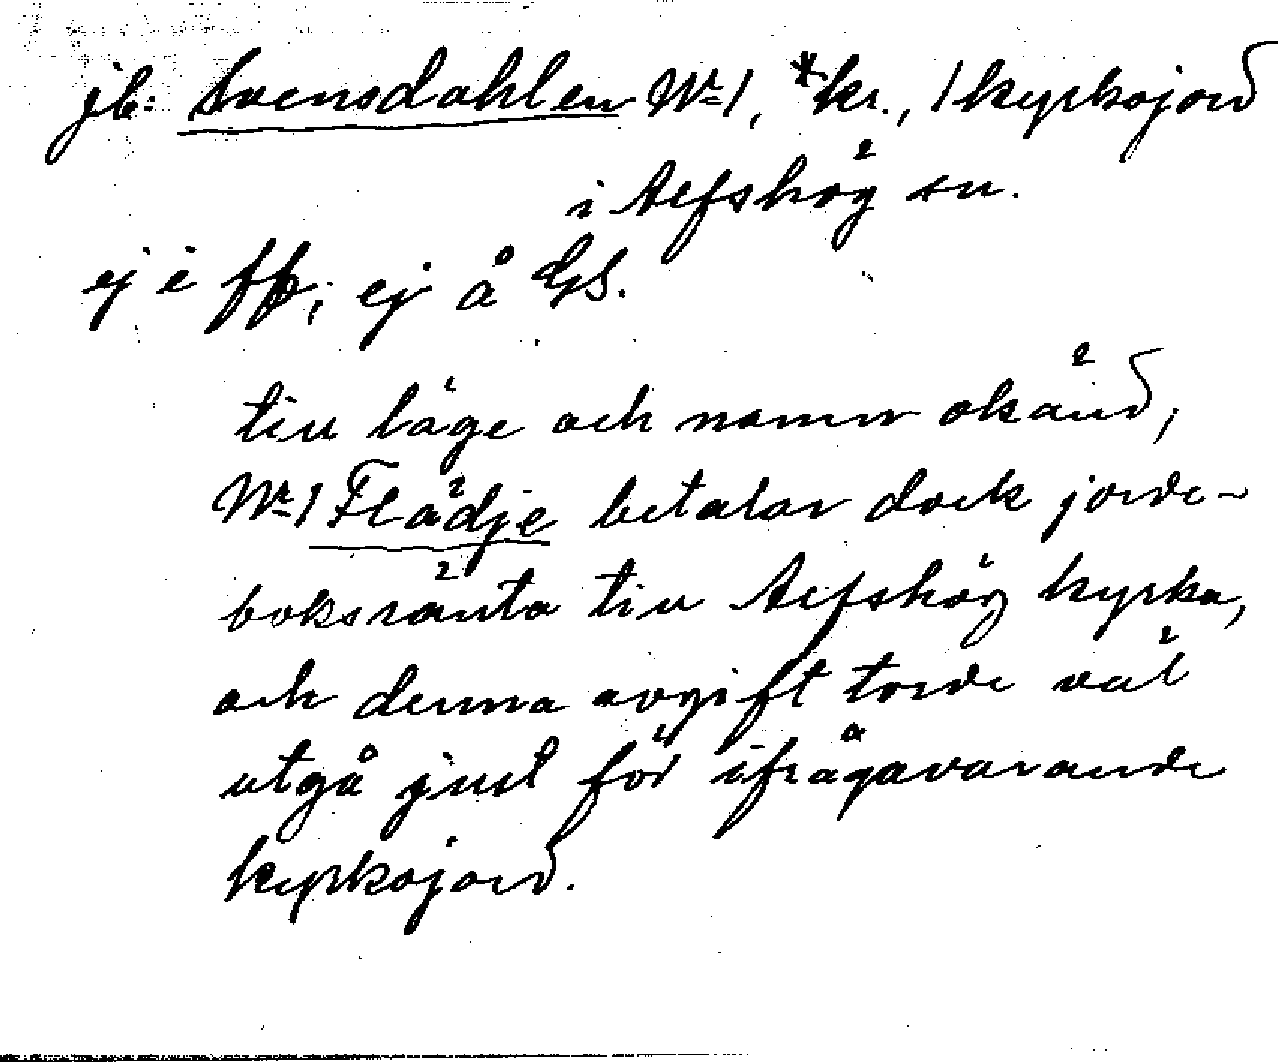 jb: Svensdahlen Nr 1, *kr., 1 kyrkojord
i Aefshög sn.
ej i fb; ej å GS.
till läge och namn okänd,
Nr 1 Flädje betalar dock jorde-
boksränta till Aefshög kyrka,
och denna avgift torde väl
utgå just för ifrågavarande
kyrkojord.